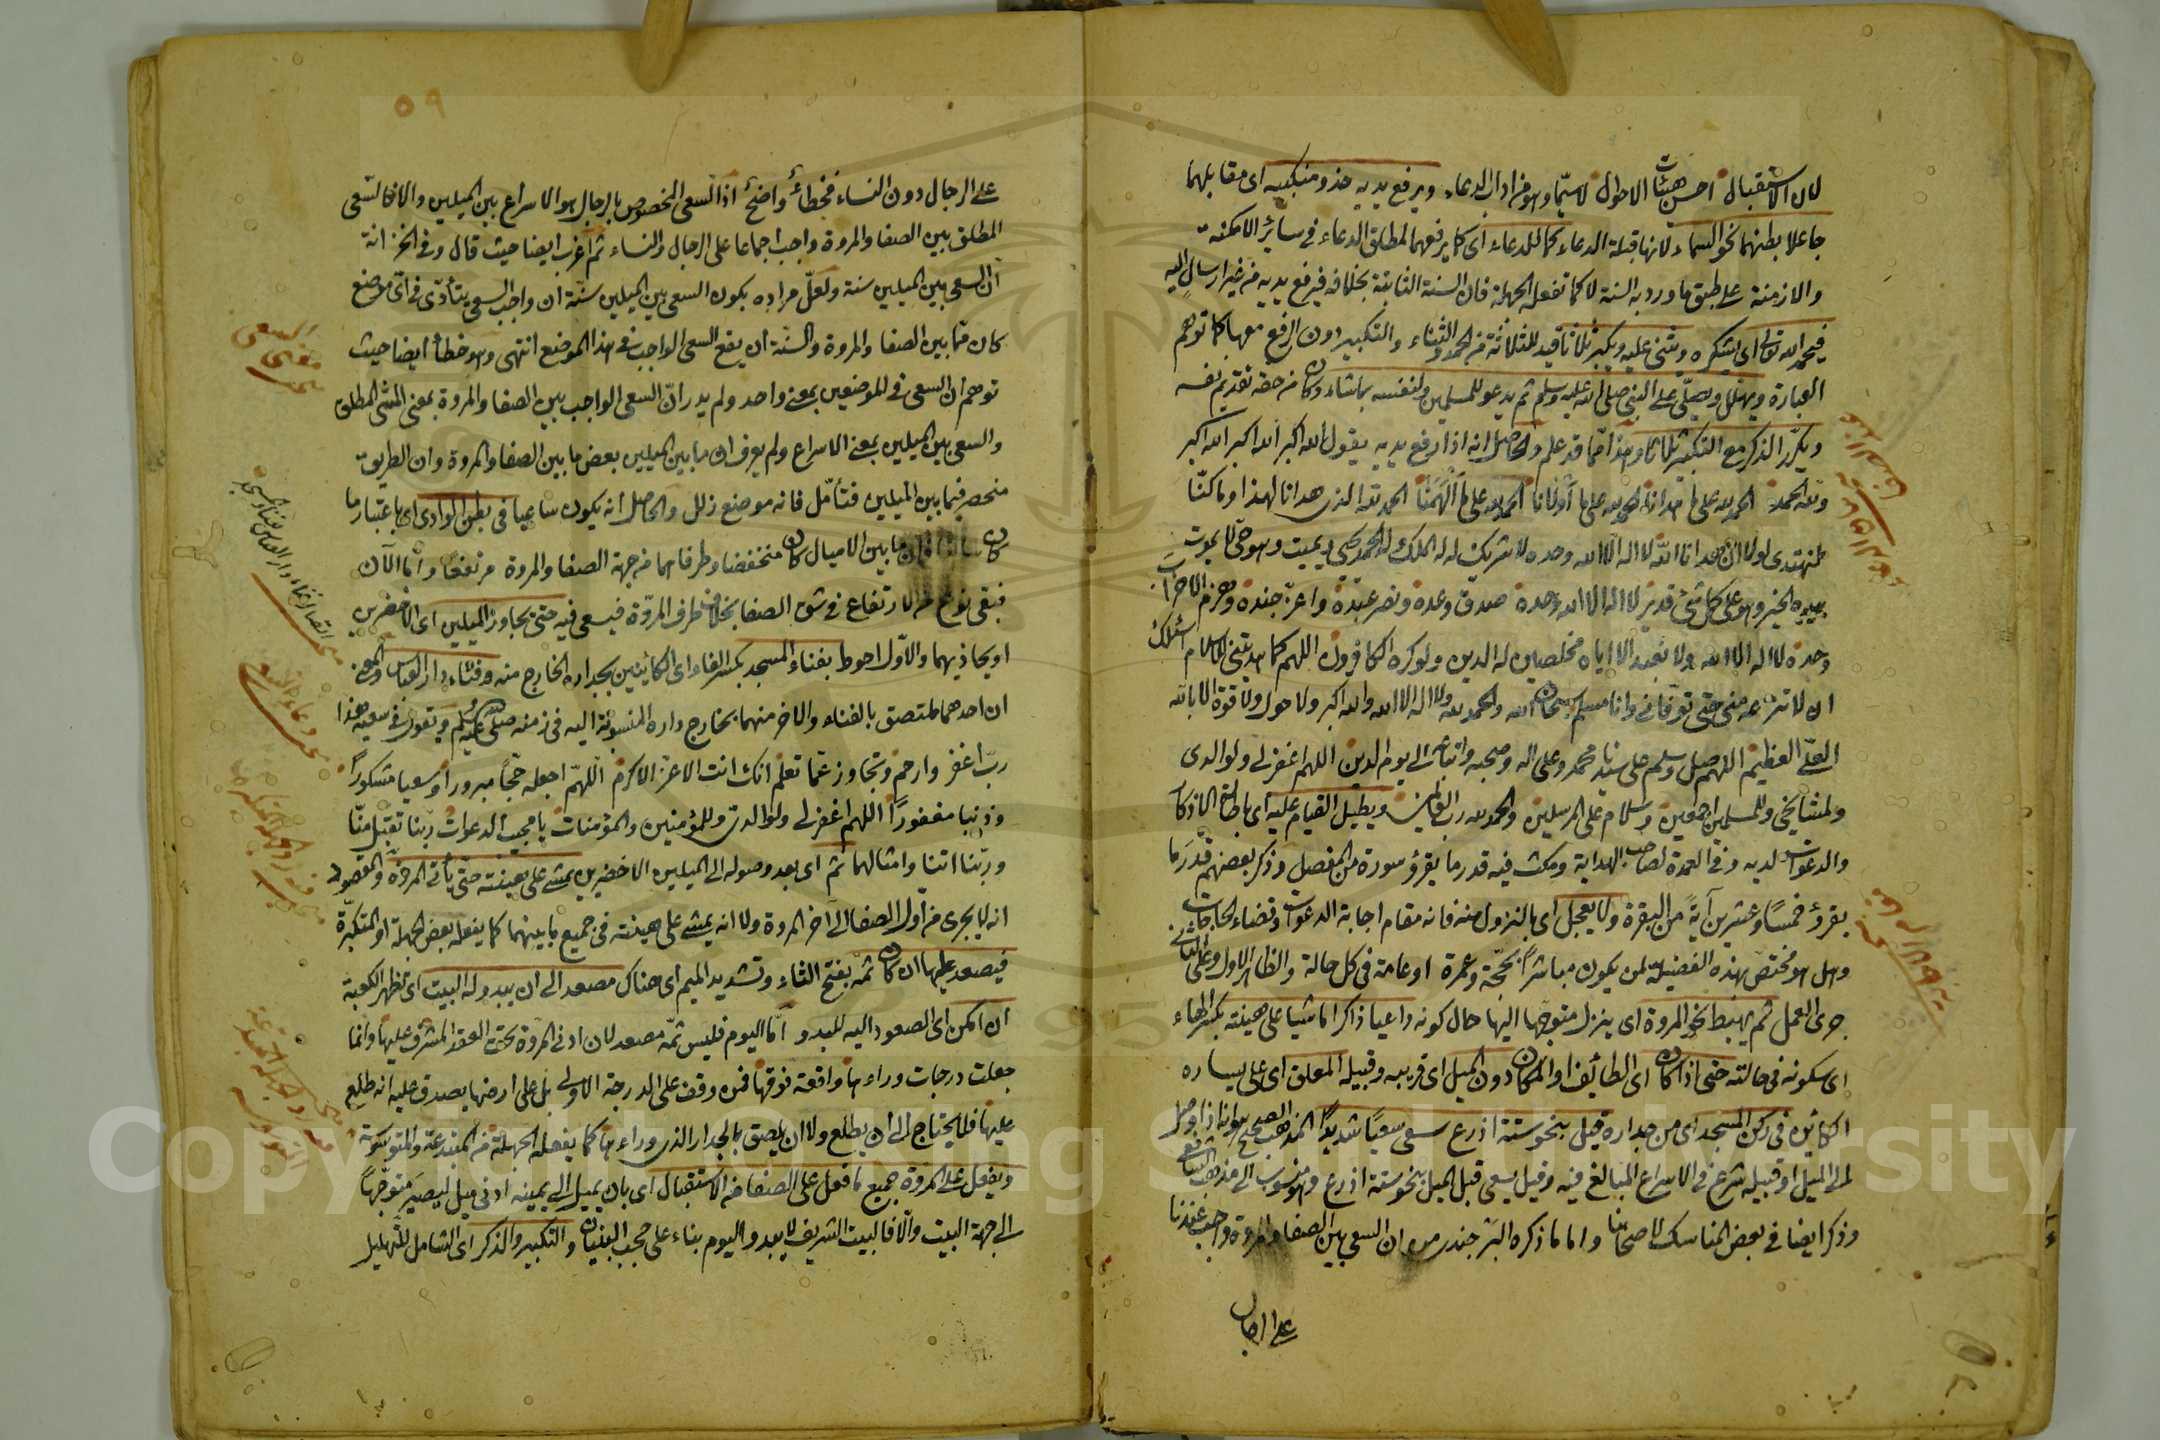 لان الاستقبال احسن هيئات الاحوال لاسيما وهو من اداب الدعاء ويرفع يديه حذو منكبيه اى مقابلهما
جاعلا بطنهما نحو السماء لانها قبلة الدعاء كما للدعاء اى كما يرفعهما لمطلق الدعاء فى سائر الامكنة
والازمنة على طبق ما ورد به السنة لا كما تفعله الجهلة فان السنة الثابتة بخلافه فيرفع يديه من غير ارسال اليه
فيحمد الله تعالى اى يشكره ويثنى عليه ويكبر ثلاثا قيد للثلاثة من الحمد والثناء والتكبير دون الرفع معها كما توهم
العبارة ويهلل ويصلى على النبى صلى الله عليه وسلم ثم يدعو للمسلمين ولنفسه بما شاء وكان من حقه تقديم نفسه
ويكرر الذكر مع التكبير ثلاثا وهذا مما قد علم والحاصل انه اذا رفع يديه يقول الله اكبر الله اكبر الله اكبر
ولله الحمد الحمد لله على ما هدانا الحمد لله على ما اولانا الحمد لله على ما الهمنا الحمد لله الذى هدانا لهذا وما كنا
لنهتدى لولا ان هدانا الله لا اله الا الله وحده لا شريك له له الملك وله الحمد يحيى ويميت وهو حى لا يموت
بيده الخير وهو على كل شئ قدير لا اله الا الله وحده صدق وعده ونصر عبده واعز جنده وهزم الاحزاب
وحده لا اله الا الله ولا نعبد الا اياه مخلصين له الدين ولو كره الكافرون اللهم كما هديتنى للاسلام اسئلك
ان لا تنزعه منى حتى توفانى وانا مسلم سبحان الله والحمد لله ولا اله الا الله والله اكبر ولا حول ولا قوة الا بالله
العلى العظيم اللهم صل وسلم على سيدنا محمد وعلى اله وصحبه واتباعه الى يوم الدين اللهم اغفر لى ولوالدى
ولمشايخى وللمسلمين اجمعين وسلام على المرسلين والحمد لله رب العالمين ويطيل القيام عليه اى باطالة الاذكار
والدعوات لديه وفى العمدة لصاحب الهداية ومكث فيه قدر ما يقرؤ سورة من المفصل وذكر بعضهم قدر ما
يقرؤ خمسا وعشرين آية من البقرة ولا يعجل اى بالنزول منه فانه مقام اجابة الدعوات وقضاء الحاجات
وهل هو مختص بهذه الفضيلة لمن يكون مباشرا بحجة وعمرة او عامة فى كل حالة والظاهر الاول وعلى الثانى
جرى العمل ثم يهبط نحو المروة اى ينزل متوجها اليها حال كونه داعيا ذاكرا ماشيا على هينته بكسر الهاء
اى سكونه فى حالته حتى اذا كان اى الطائف او المكان دون الميل اى قريبه وقبيله المعلق اى على يساره
الكائن فى ركن المسجد اى من جداره قيل بنحو ستة اذرع سعى سعيا شديدا المذهب الصحيح هو انه اذا وصل
الى الميل او قبيله شرع فى الاسراع المبالغ فيه وقيل يسعى قبل الميل بنحو ستة اذرع وهو منسوب الى مذهب الشافعى
وذكر ايضا فى بعض المناسك لاصحابنا واما ما ذكره البرجندى من ان السعى بين الصفا والمروة واجب عندنا
على الرجال
٥٩
على الرجال دون النساء فخطأ واضح اذ السعى المخصوص بالرجال هو الاسراع بين الميلين والا فالسعى
المطلق بين الصفا والمروة واجب اجماعا على الرجال والنساء ثم اغرب ايضا حيث قال وفى الخزانة
ان السعى بين الميلين سنة ولعل مراده بكون السعى بين الميلين سنة ان واجب السعى يتأدى فى اى موضع
كان مما بين الصفا والمروة والسنة ان يقع السعى الواجب فى هذا الموضع انتهى وهو خطأ ايضا حيث
توهم ان السعى فى الموضعين بمعنى واحد ولم يدر ان السعى الواجب بين الصفا والمروة بمعنى المشى المطلق
والسعى بين الميلين بمعنى الاسراع ولم يعرف ان ما بين الميلين بعض ما بين الصفا والمروة وان الطريق
منحصر فيما بين الميلين فتأمل فانه موضع زلل والحاصل انه يكون ساعيا فى بطن الوادى اى باعتبار ما
كان فان ما بين الاميال كان منخفضا وطرفاهما من جهة الصفا والمروة مرتفعا واما الآن
فبقى نوع من الارتفاع فى شق الصفا بخلاف طرف المروة فيسعى فيه حتى يجاوز الميلين اى الاخضرين
او يحاذيهما والاول احوط بفناء المسجد بكسر الفاء اى الكائنين بجداره الخارج منه وفناء دار العباس والمعنى
ان احدهما ملتصق بالفناء والاخر منهما بخارج داره المنسوبة اليه فى زمنه صلى الله عليه وسلم ويقول فى سعيه هذا
رب اغفر وارحم وتجاوز عما تعلم انك انت الاعز الاكرم اللهم اجعله حجا مبرورا وسعيا مشكورا
وذنبا مغفورا اللهم اغفر لى ولوالدى وللمؤمنين والمؤمنات يا مجيب الدعوات ربنا تقبل منا
وربنا اتنا وامثالهما ثم اى بعد وصوله الى الميلين الاخضرين يمشى على هينته حتى يأتى المروة والمقصود
انه لا يجرى من اول الصفا الى آخر المروة ولا انه يمشى على هينته فى جميع ما بينهما كما يفعله بعض الجهلة او المتكبرة
فيصعد عليها ان كان ثمه بفتح الثاء وتشديد الميم اى هناك مصعد الى ان يبدو له البيت اى تظهر الكعبة
ان امكن اى الصعود اليه للبدو اما اليوم فليس ثمه مصعد لان ادنى المروة تحت العقد المشرف عليها وانما
جعلت درجات وراءها واقعة فوقها فمن وقف على الدرجة الاولى بل على ارضها يصدق عليه انه طلع
عليها فلا يحتاج الى ان يطلع ولا ان يلصق بالجدار الذى وراءها كما يفعله الجهلة من المبتدعة والمتوسوسة
ويفعل على المروة جميع ما فعل على الصفا من الاستقبال اى بان يميل الى يمينه ادنى ميل ليصير متوجها
الى جهة البيت والا فالبيت الشريف لا يبدو اليوم بناء على حجب البنيان والتكبير والذكر اى الشامل للتهليل